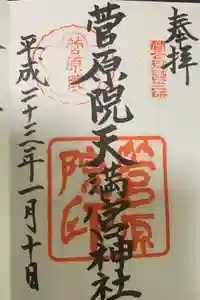 奉拝
菅原院天満宮神社
菅原院
菅原院印
平成二十二年一月十日